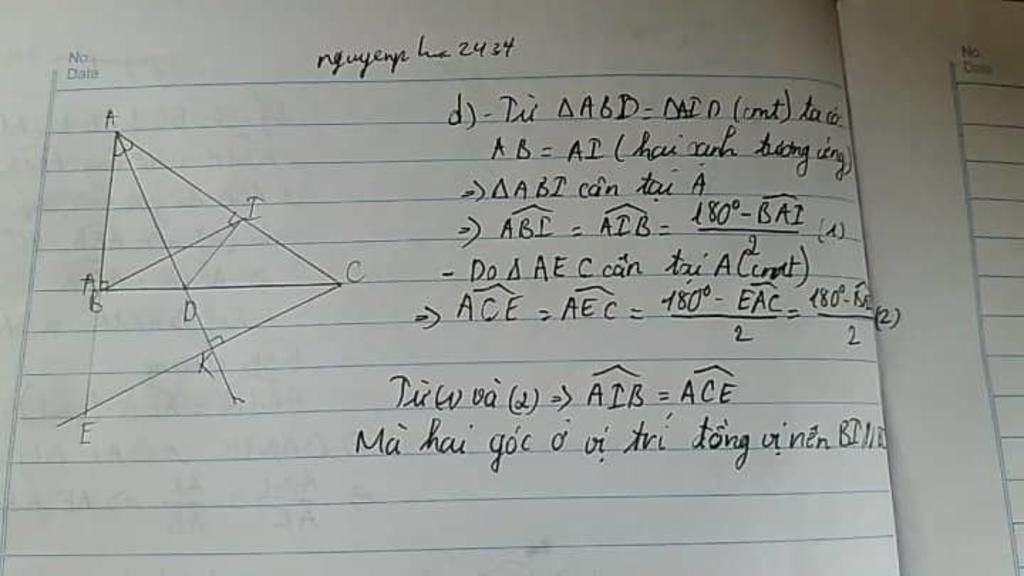 No.
Date
No.
Date
d) - Từ ΔABD = ΔAID (cmt) ta có
AB = AI (hai cạnh tương ứng)
=> ΔABI cân tại A
=> \widehat{ABI} = \widehat{AIB} = \frac{180° - \widehat{BAI}}{2} (1)
- Do ΔAEC cân tại A (cmt)
=> \widehat{ACE} = \widehat{AEC} = \frac{180° - \widehat{EAC}}{2} = \frac{180°-}{2} (2)
Từ (1) và (2) => \widehat{AIB} = \widehat{ACE}
Mà hai góc ở vị trí đồng vị nên BI //
A
I
B
D
C
K
E